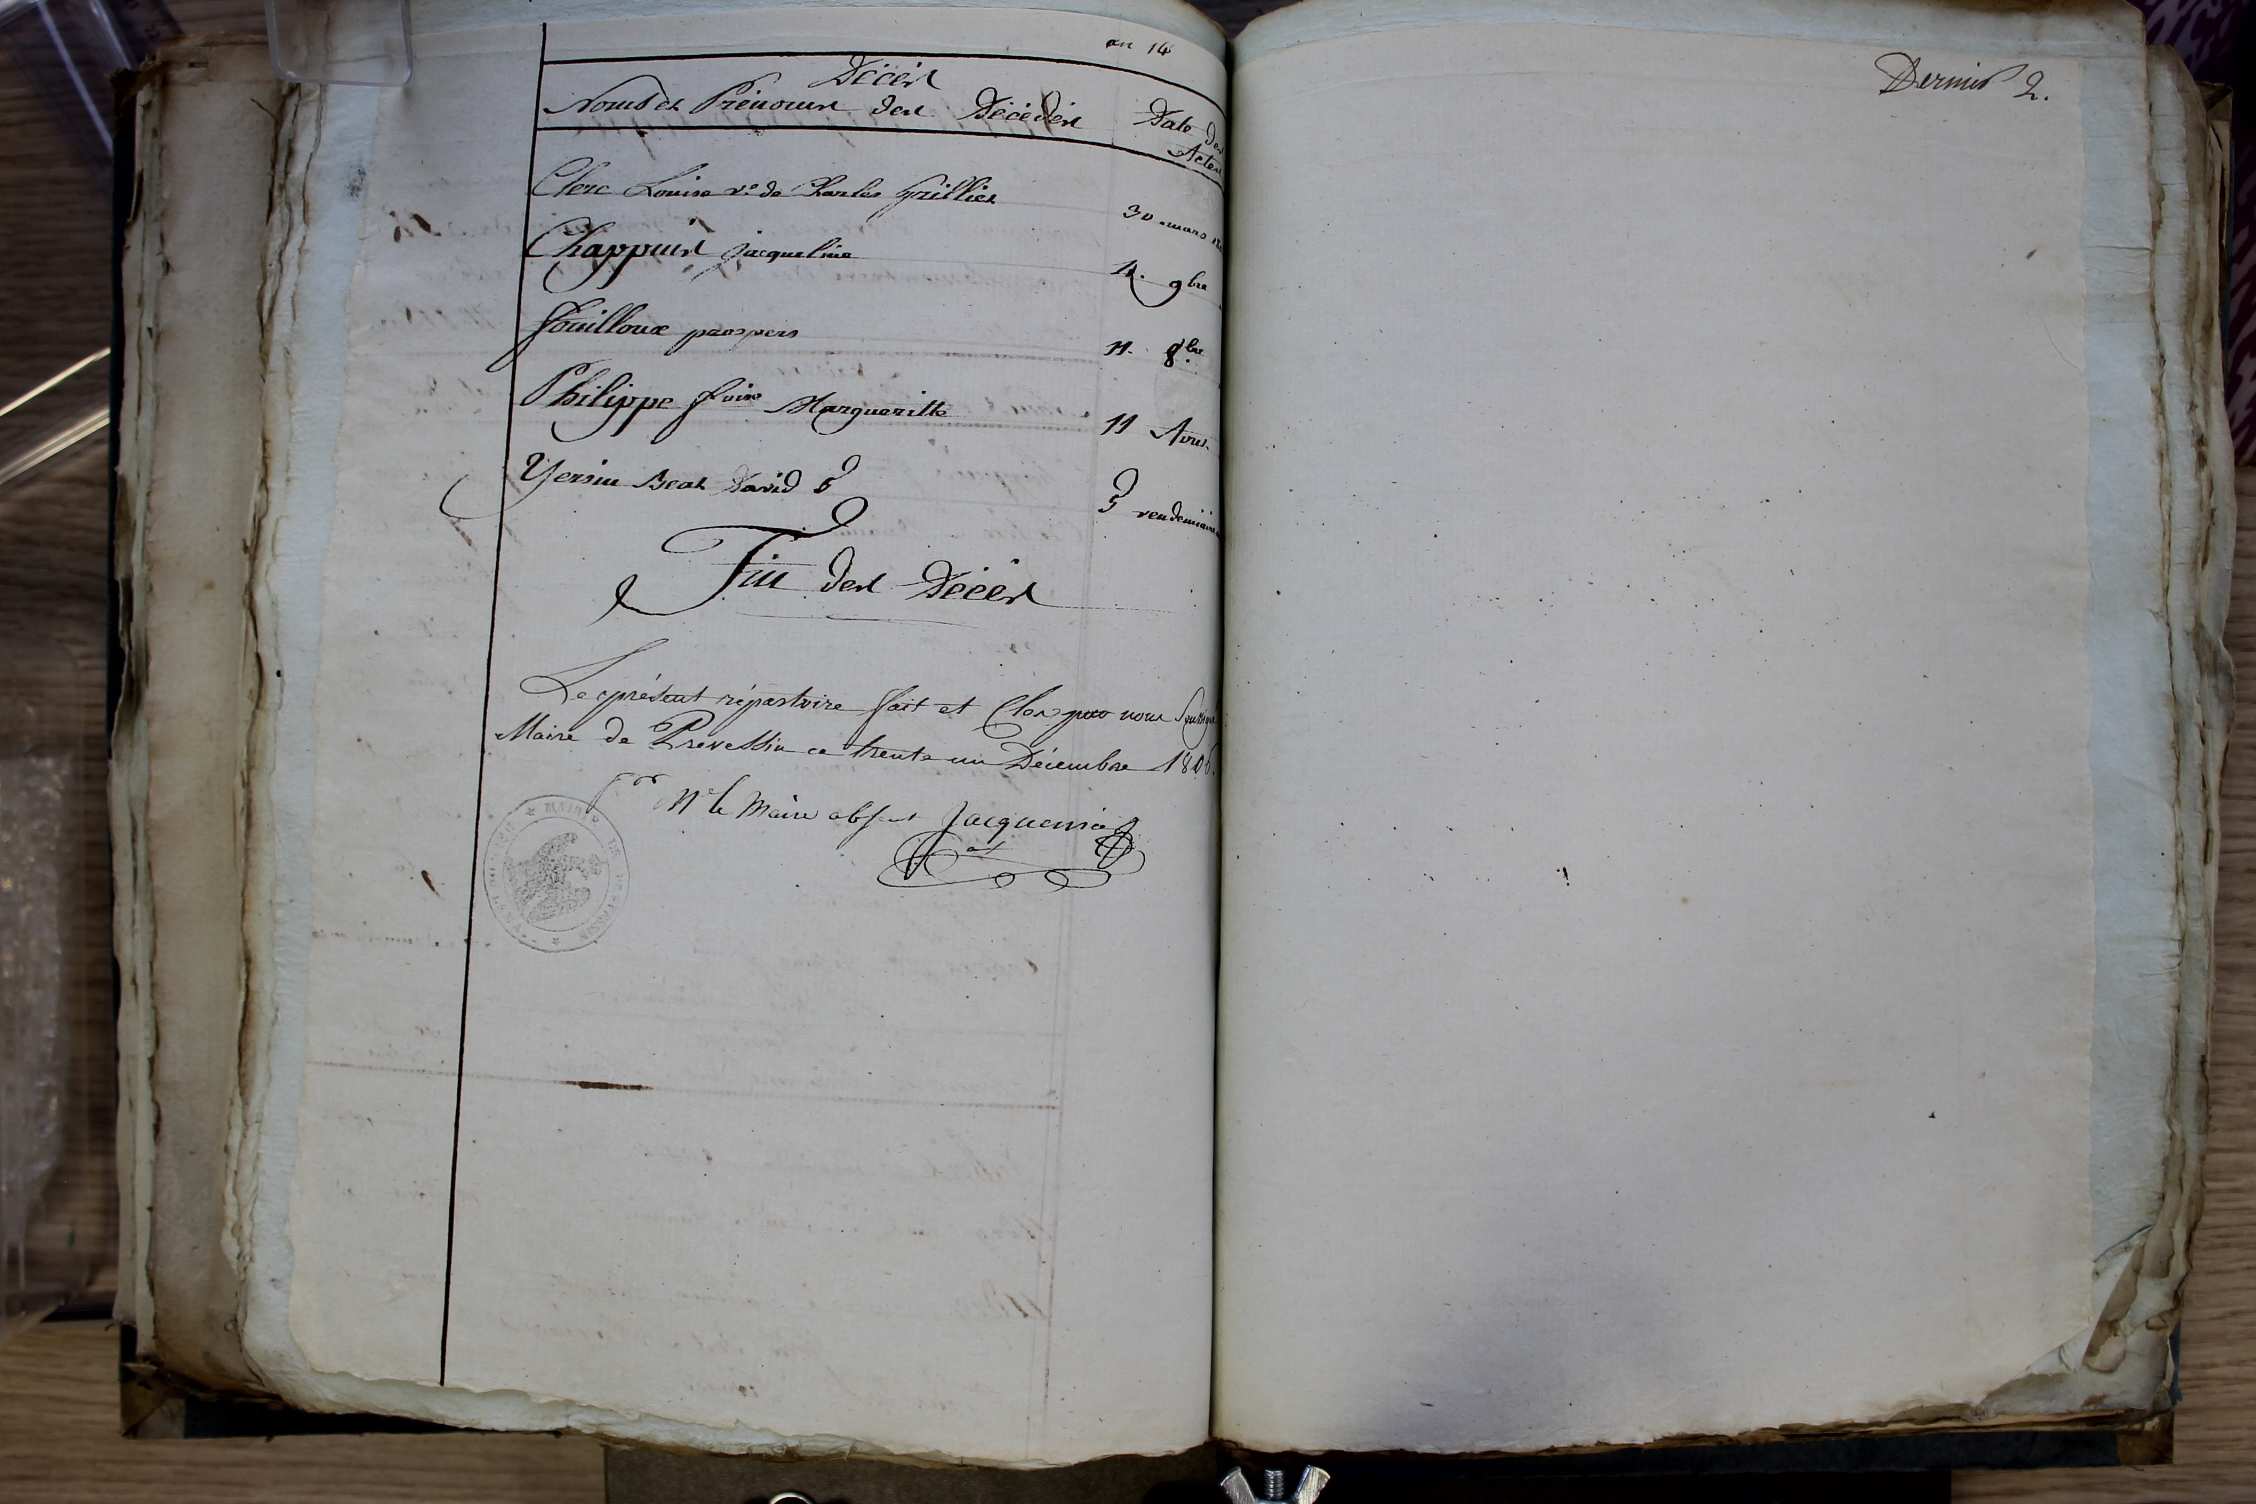 an 14
Décès
Noms et Prénoms des Décédés Date des
Actes
Clerc Louise ve de Charles Grillier 30 mars
Chappuis jacqueline 4. 9bre
fouilloux prospers 11. 8bre
Philippe fvoise Margueritte 11 Avril
Yersin Beat David 5 vendemiaire
Fin des Décès
Le présent répertoire fait et Clos par nous Soussigné
Maire de Prevessin ce trente un Décembre 1806
Pour Mr le Maire absent Jacquemier
at
MAIRIE DE PREVESSIN
Dernier 2.